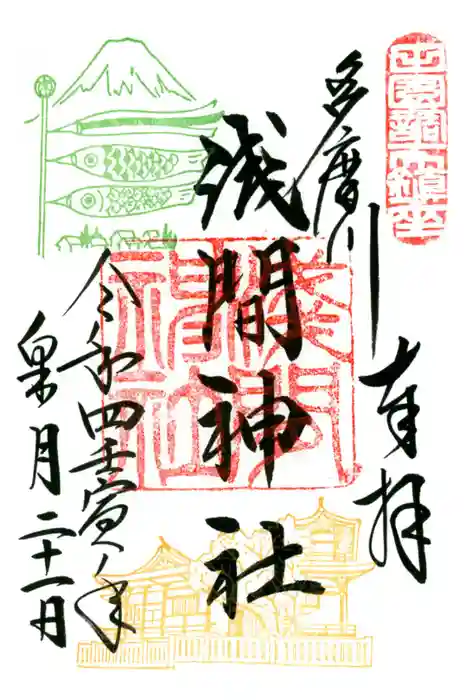 田園調布鎮座
奉拝
多摩川
浅間神社
令和四壬寅年
皐月二十一日
浅間神社